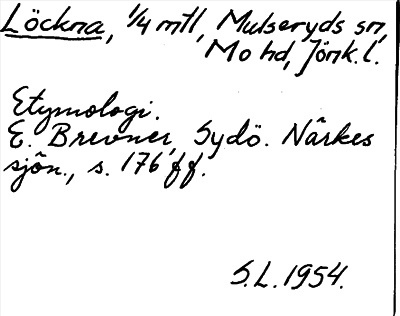 Löckna, 1/4 mtl, Mulseryds sn,
Mo hd, Jönk. l.
Etymologi.
E. Brevner, Sydö. Närkes
sjön., s. 176 ff.
S.L. 1954.